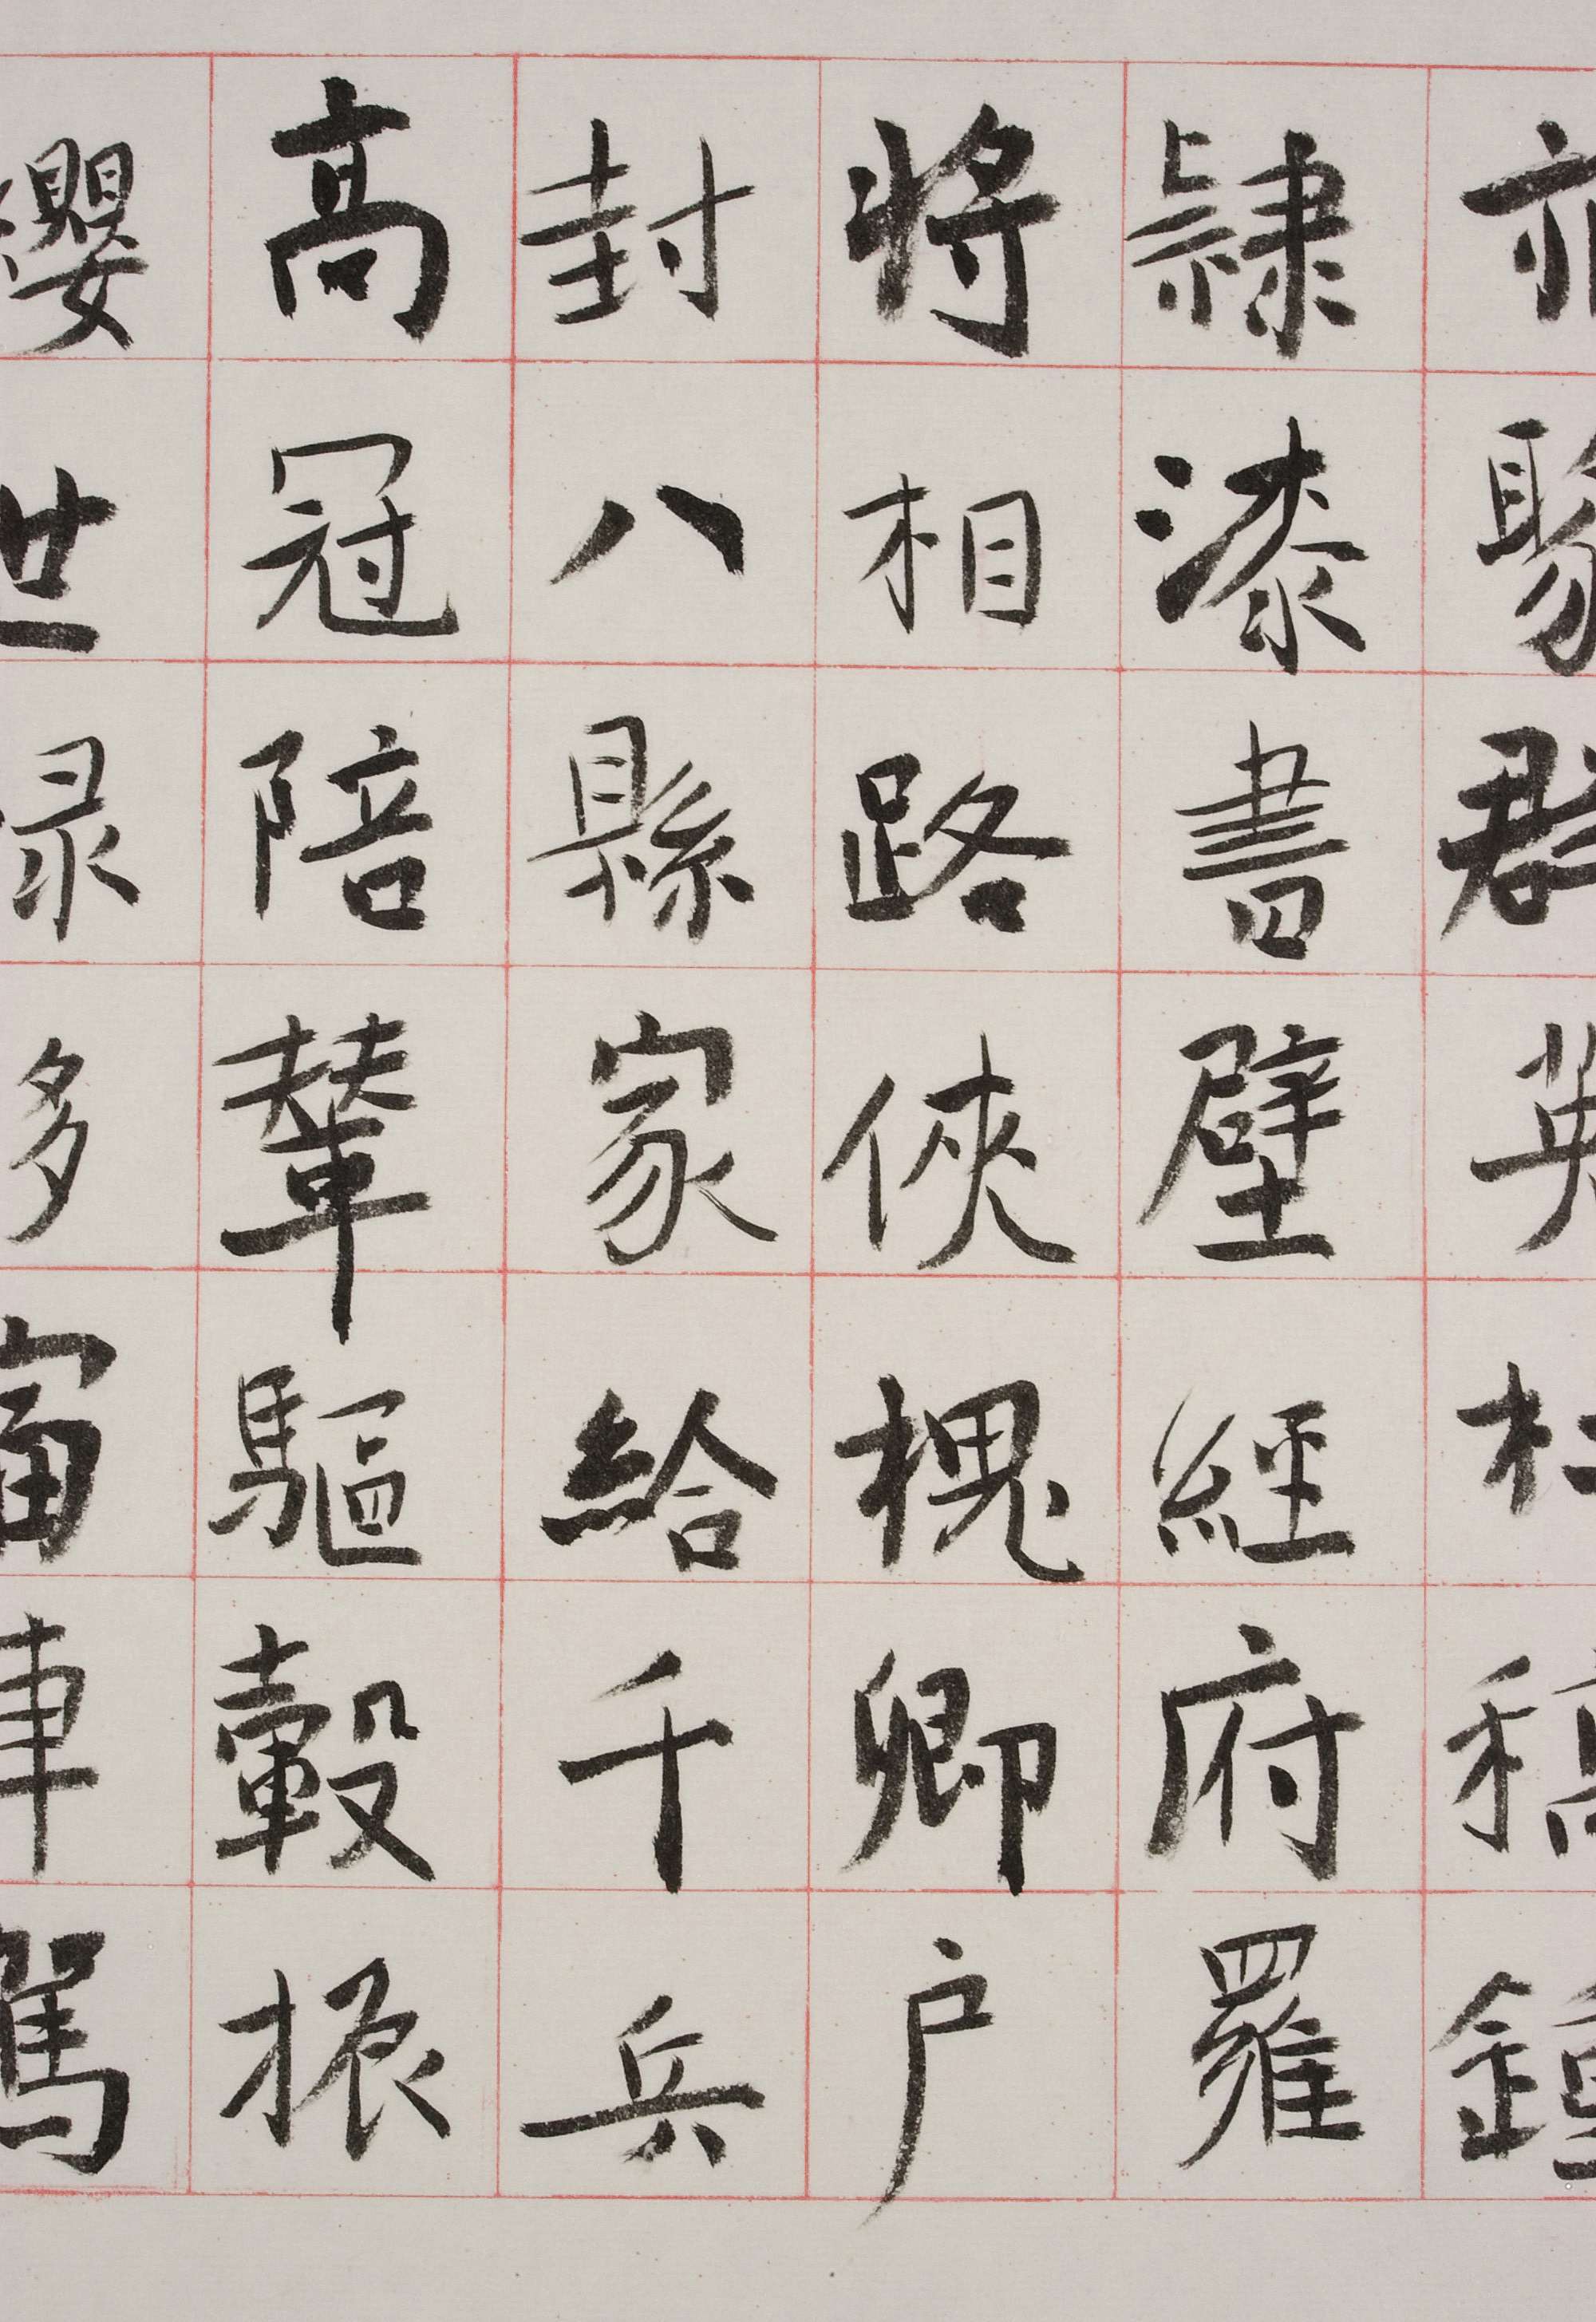 亦聚群英杜稿鍾
隸漆書壁經府羅
将相路俠槐卿户
封八縣家給千兵
高冠陪輦驅轂振
纓世禄侈富車駕